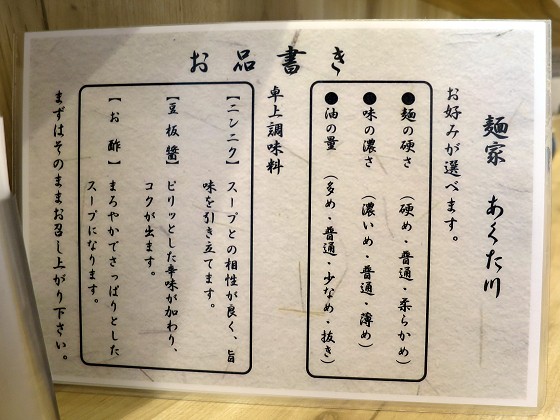 お品書き
麺家 あくた川
お好みが選べます。
●麺の硬さ (硬め・普通・柔らかめ)
●味の濃さ (濃いめ・普通・薄め)
●油の量 (多め・普通・少なめ・抜き)
卓上調味料
【ニンニク】スープとの相性が良く、旨
味を引き立てます。
【豆板醤】ピリッとした辛味が加わり、
コクが出ます。
【お酢】まろやかでさっぱりとした
スープになります。
まずはそのままお召し上がり下さい。